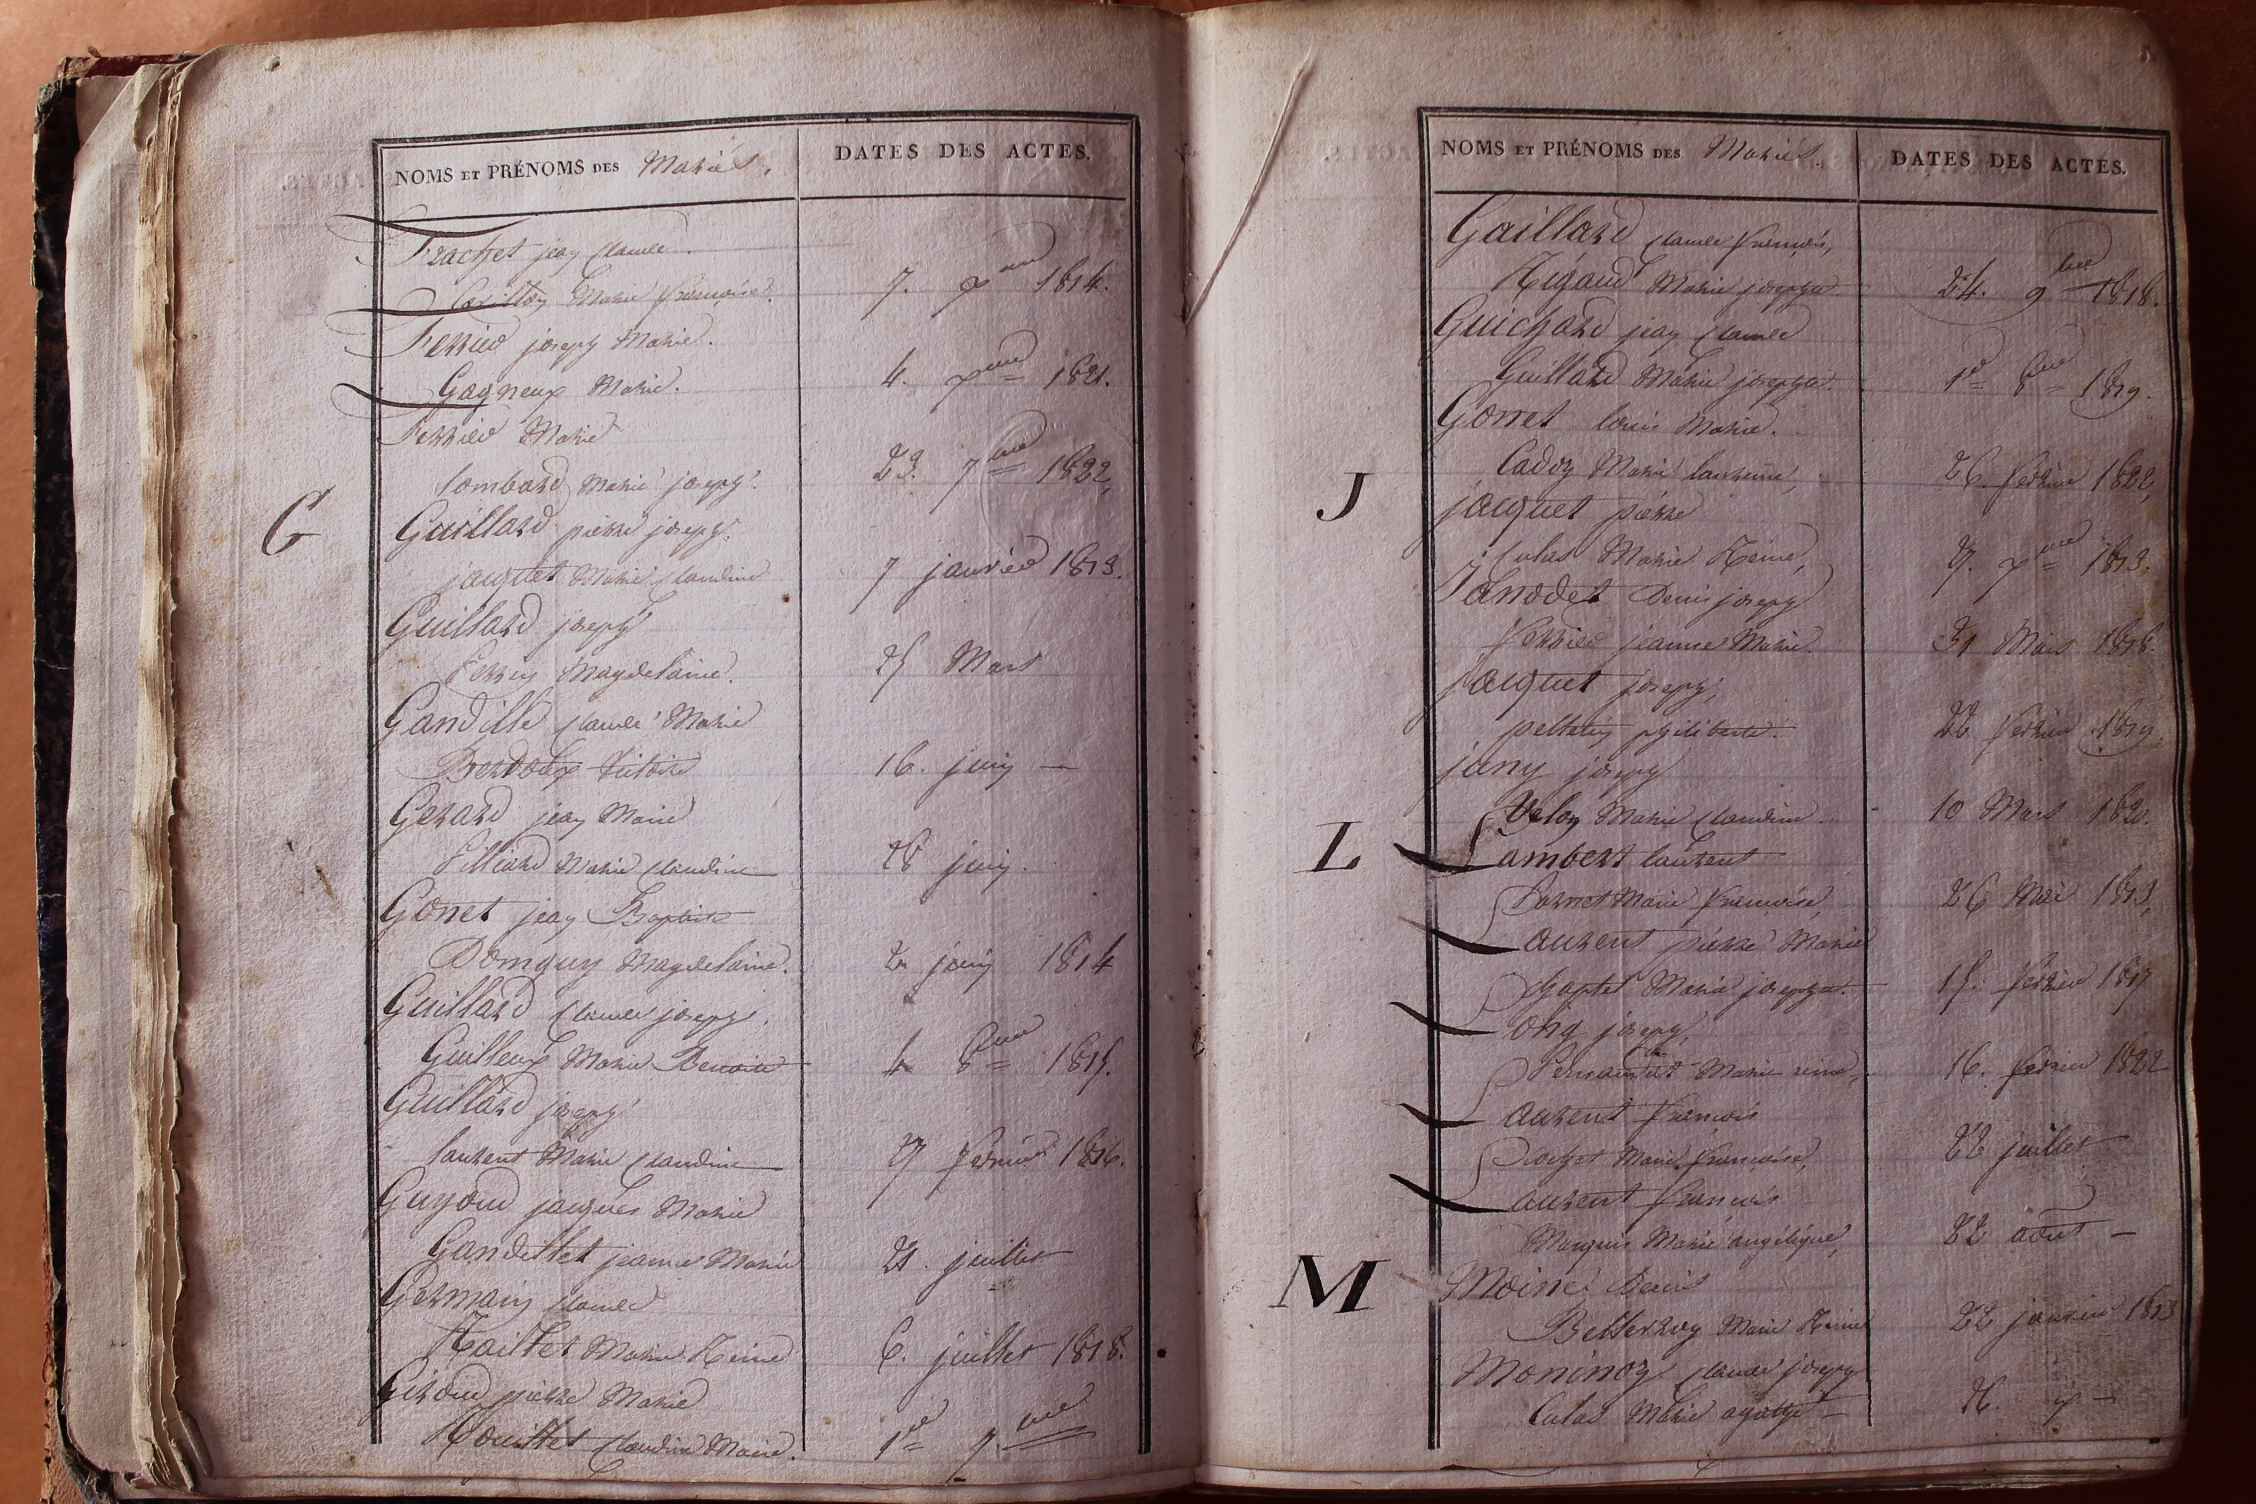 NOMS ET PRÉNOMS DES Mariés. DATES DES ACTES.
Frachet jean Claude
Marie françoise. 1814.
Ferrier joseph Marie.
Gagneux Marie. 4. 1821.
Ferrier Marie
lombard Marie joseph. 23. 7bre 1822,
G
Guillard pierre joseph.
jacquet Marie Claudine 7 janvier 1813.
Guillard joseph
Magdelaine. Mars
Gandille Claude Marie
Berdoux Victoire 16. juin —
Gerard jean Marie
Marie Claudine 28 juin.
Gonet jean Baptiste
Domguy Magdelaine. 2 juin 1814
Guillard Claude joseph,
Guilleux Marie Benoite 4 8bre 1815.
Guillard joseph
laurent Marie Claudine 27 février 1816.
Guyoud jacques Marie
Gandillet jeanne Marie 21. juillet
Germain Claude
Raillet Marie Reine 6. juillet 1818.
Giroud pierre Marie
Rouillet Claudine Marie. 1er 7bre
NOMS ET PRÉNOMS DES Mariés. DATES DES ACTES.
Gaillard Claude François,
Rigaud Marie josephe 24. 9bre 1818.
Guichard jean Claude
Guillard Marie josephe. 1er 8bre 1819.
Gonet louis Marie.
Cadoz Marie laurence, 26. février 1822,
J
jacquet pierre
Culas Marie Reine, 1813.
Janodet Denis joseph
ferrier jeanne Marie. 31 Mars 1818.
jacquet joseph,
philiberte. 22 février 1819.
jany joseph
Velon Marie Claudine 10 Mars 1820.
L
Lambert laurent
Marie françoise, 26 Mai 1813,
Laurent pierre Marie
Chaptel Marie josephte. 15. février 1817
Long joseph,
Marie reine, 16. février 1822
Laurent françois
Marie françoise, 22 juillet
Laurent françois
Marquis Marie angélique, 22 août —
M
Moine Denis
Marie Reine 22 janvier 1813
Moninoz Claude joseph
Culas Marie agathe — 26.